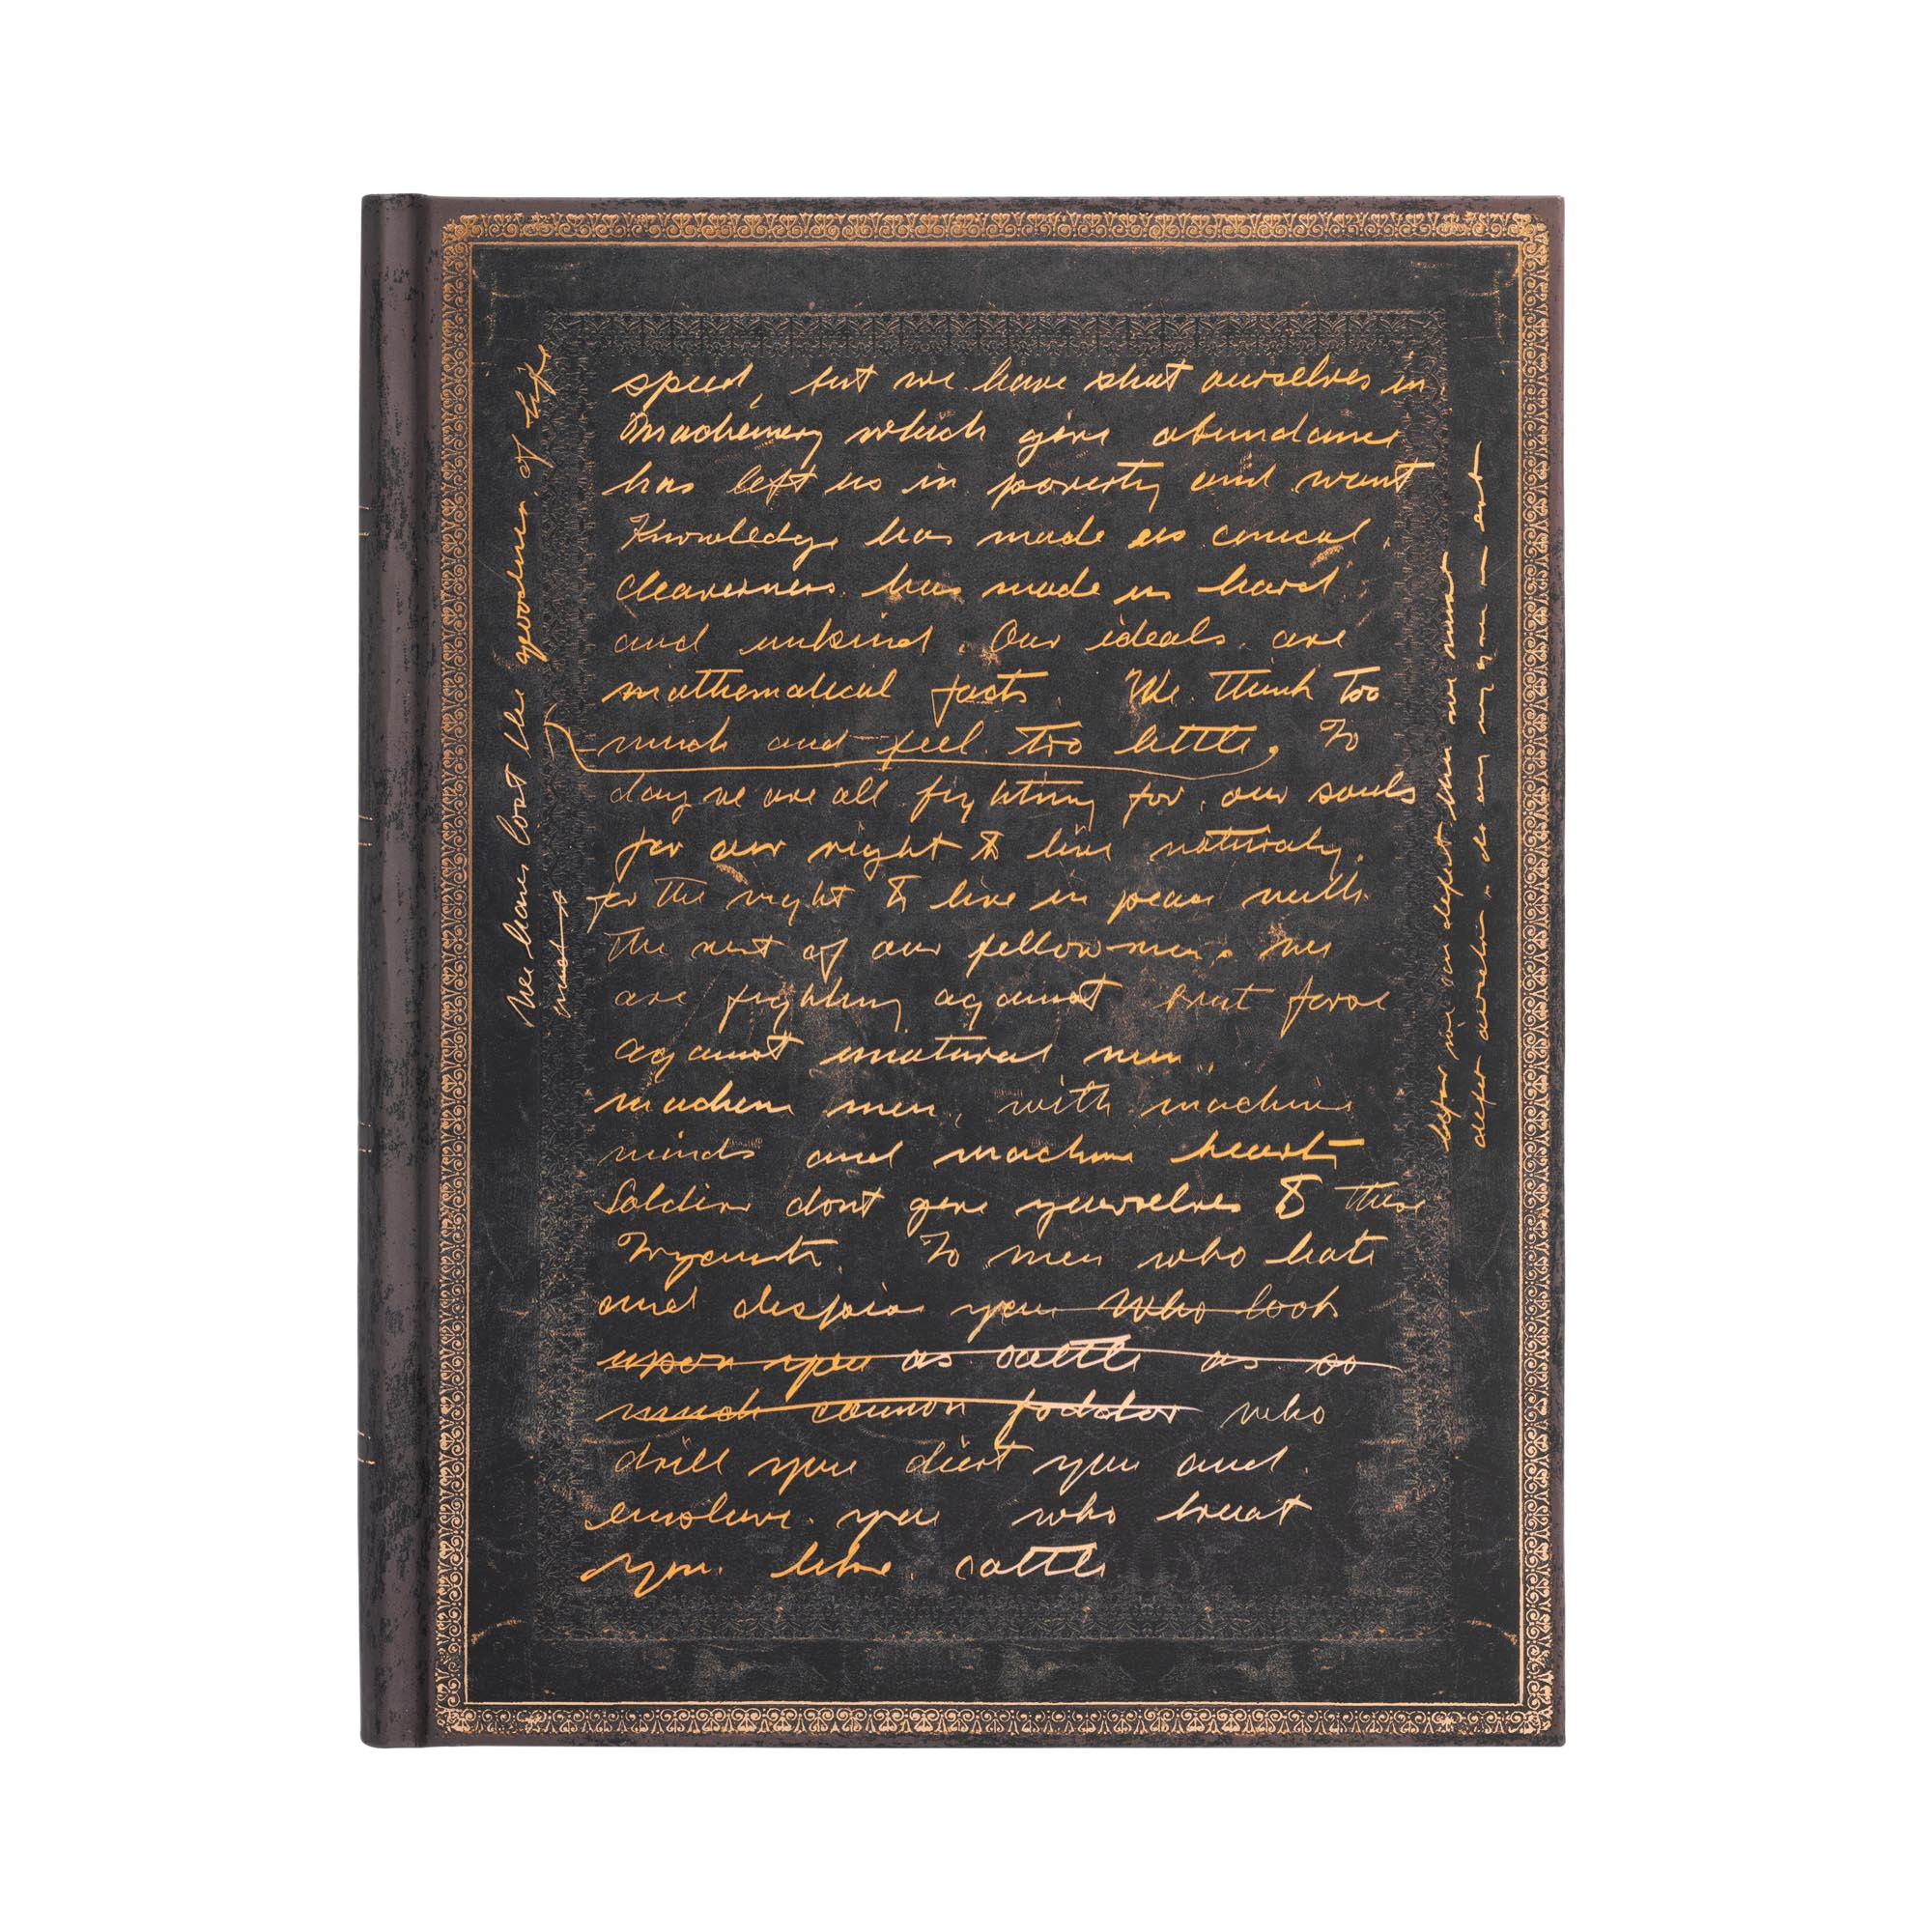 speed, but we have shut ourselves in
Machinery which give abundance
has left us in poverty and want
Knowledge has made us conical,
cleaverness has made us hard
and unkind. Our ideals are
mathematical facts. We think too
much and feel too little. To
day we are all fighting for our souls
for our right to live naturaly.
for the right to live in peace with
the rest of our fellow men. we
are fighting against brut force
against unatural men.
machene men, with machine
minds and machine hearts
Soldiers dont give yourselves to these
To men who hate
and despise you who look
upon you as cattle as so
much cannon fodder who
drill you diert you and
enslave you who treat
you like cattle
We have lost the goodness of life
much
defeat we must